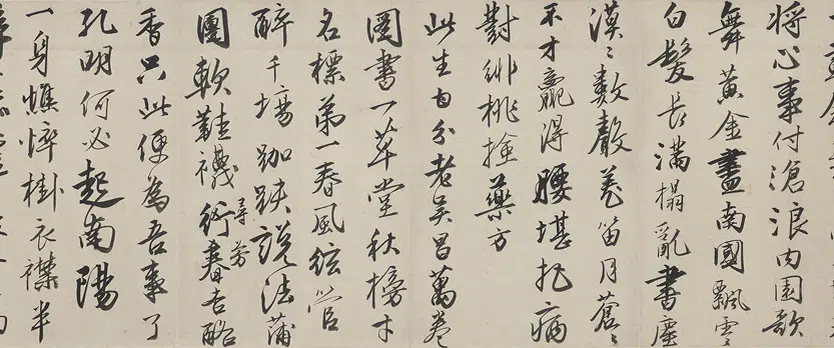 將心事付滄浪內園歌
舞黃金盡南國飄零
白髮長滿榻亂書塵
漠〻數聲羌笛月蒼〻
不才贏得腰堪把病
對緋桃撿藥方
此生自分老吳昌萬卷
圖書一草堂秋榜才
名標第一春風絃管
醉千場跏趺說法蒲
團軟鞋襪衍春杏酪
尋芳
香只此便為吾事了
孔明何必起南陽
一身憔悴掛衣襟半